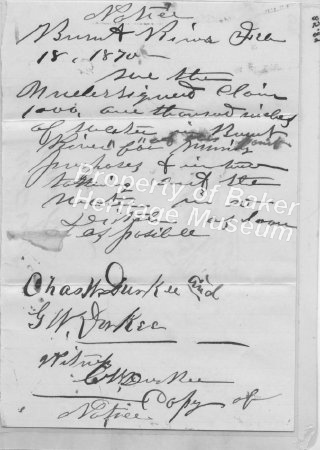 Notice
Burnt River Feb
18, 1870
we the
Undersigned Claim
1000, one thousand inches
of water Burnt
River for mining
purposes & intend
the
as soon
as posible
Chas W Durkee and
G W Durkee
Witness
C W Durkee
Copy of
Notice
Property of Baker
Heritage Museum